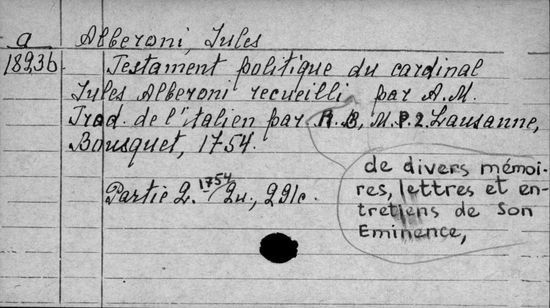 a Alberoni, Jules
18236 Testament politique du cardinal
Jules Alberoni recueilli par A.M.
Trad. de l'italien par R.B, M.P.2. Lausanne,
Bousquet, 1754.
de divers mémoi-
res, lettres et en-
tretiens de son
Eminence,
Partie 2. 1754 2u., 291c.